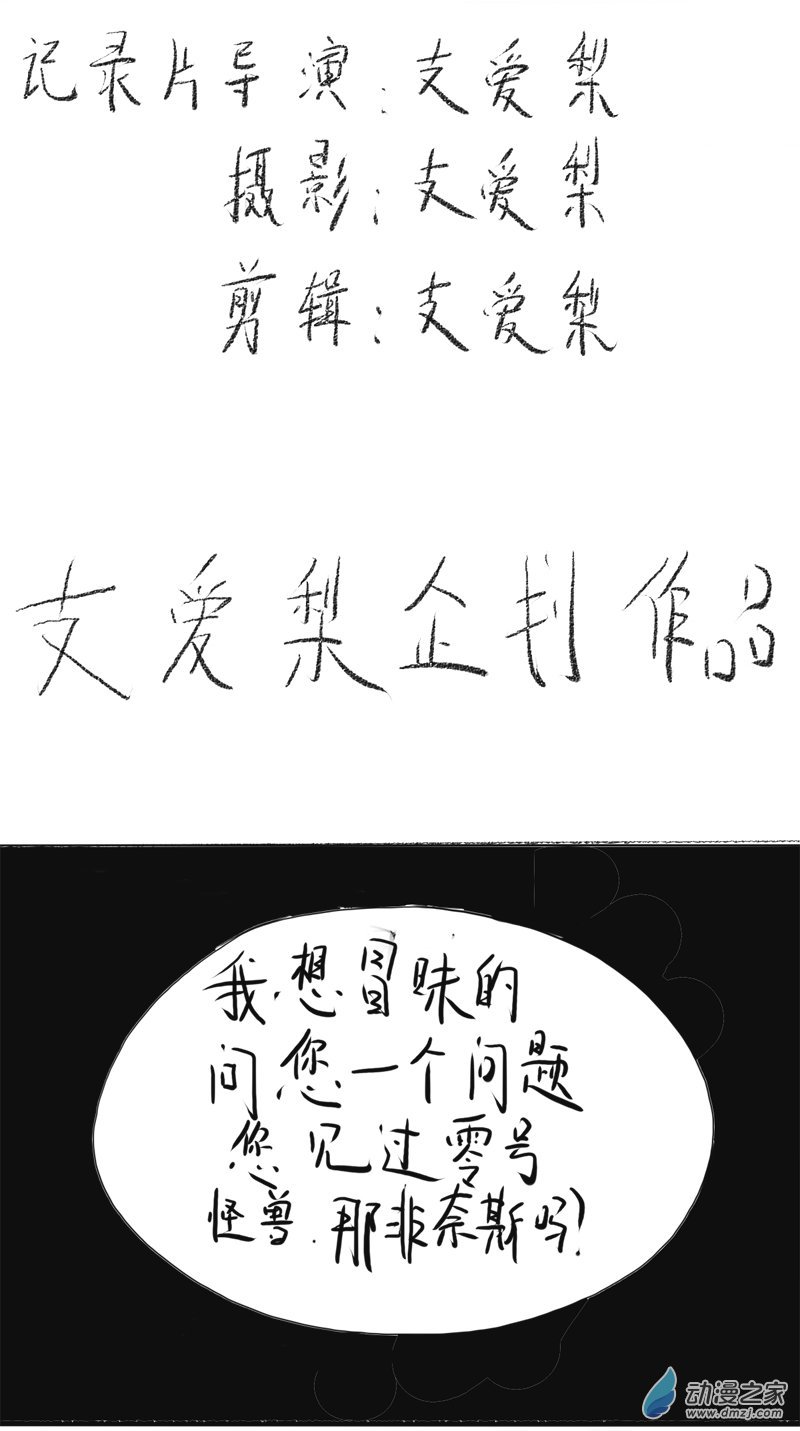 记录片导演：支爱梨
摄影：支爱梨
剪辑：支爱梨
支爱梨企划作品
我想冒昧的
问您一个问题
您见过零号
怪兽.那非奈斯吗?
动漫之家
www.dmzj.com